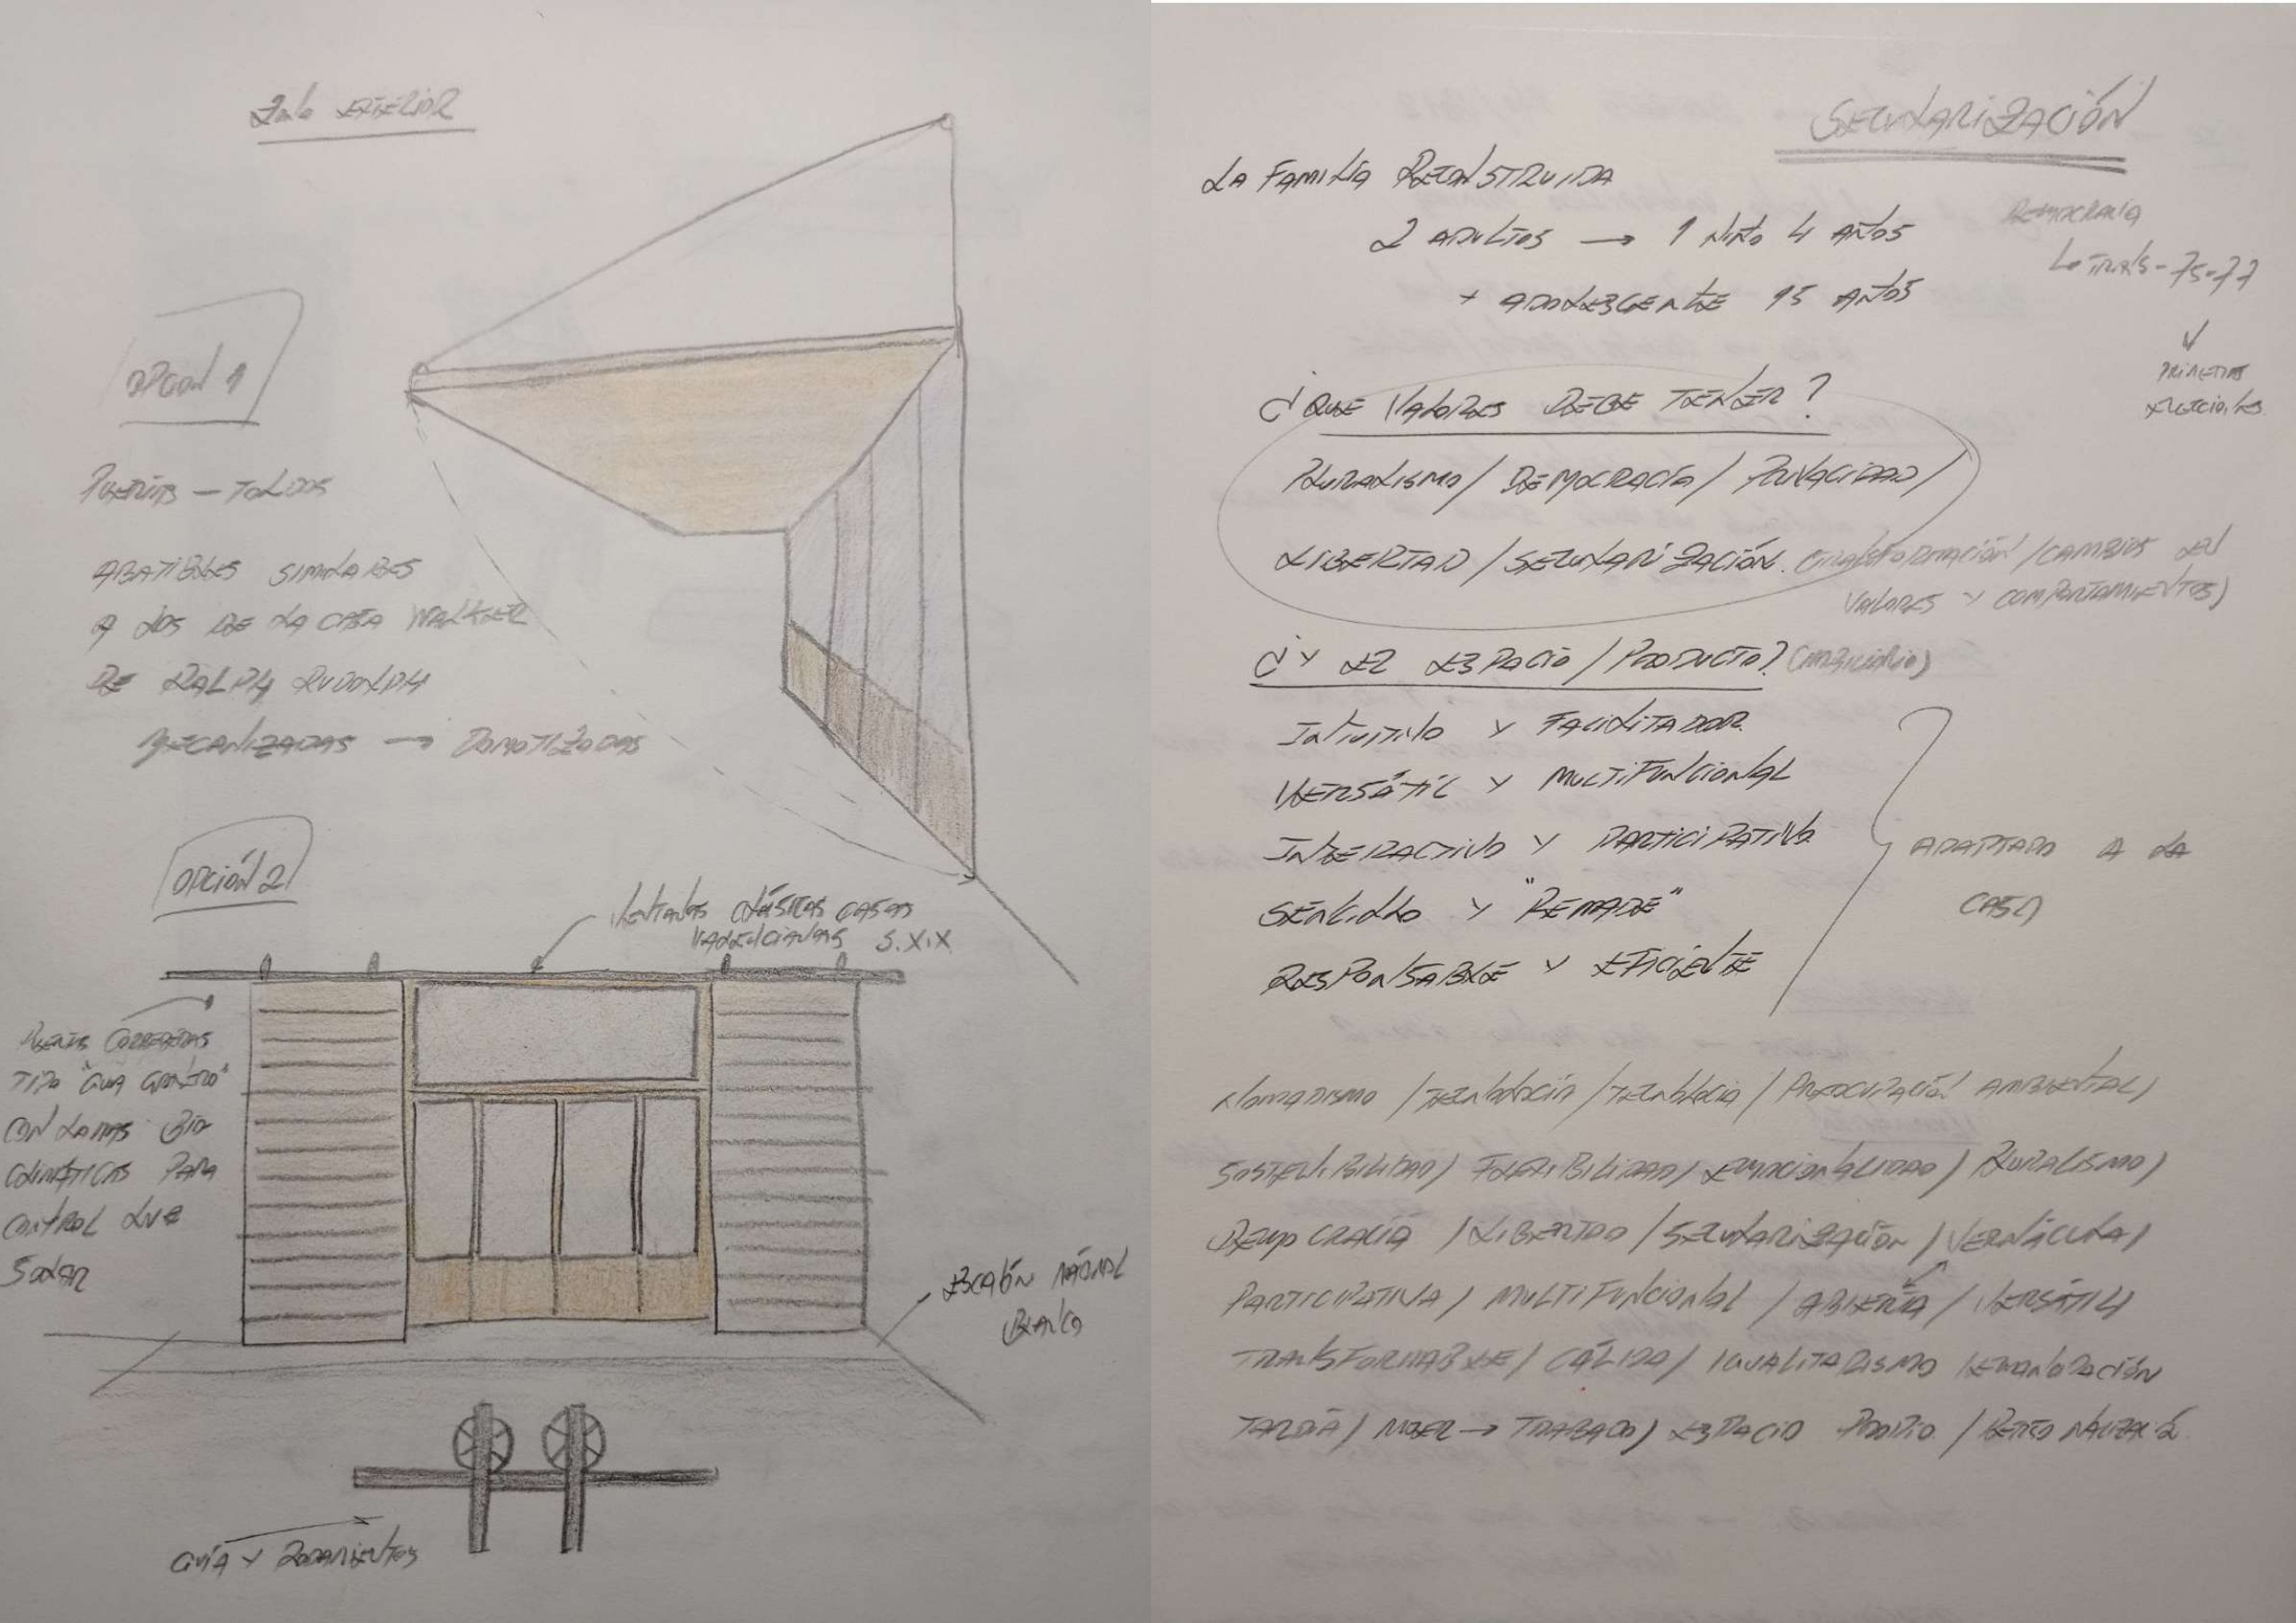 Zona EXTERIOR
OPCIÓN 1
PUERTAS - TOLDOS
ABATIBLES SIMILARES
A LOS DE LA CASA WALKER
DE RALPH RUDOLPH
MECANIZADAS → DOMOTIZADAS
OPCIÓN 2
VENTANAS CLÁSICAS CASAS
VALENCIANAS S. XIX
PUERTAS CORREDERAS
TIPO "GUIA GRANERO"
CON LAMAS BIO
CLIMÁTICAS PARA
CONTROL LUZ
SOLAR
ESCALÓN MÁRMOL
BLANCO
GUÍA Y RODAMIENTOS
SECULARIZACIÓN
LA FAMILIA RECONSTRUIDA
2 ADULTOS → 1 NIÑO 4 AÑOS
+ ADOLESCENTE 15 AÑOS
DEMOCRACIA
75-77
PRIMERAS
ELECCIONES
¿QUE VALORES DEBE TENER?
PLURALISMO / DEMOCRACIA / PRIVACIDAD /
LIBERTAD / SECULARIZACIÓN. (TRANSFORMACIÓN / CAMBIOS EN
VALORES Y COMPORTAMIENTOS)
¿Y EL ESPACIO / PRODUCTO? (MOBILIARIO)
INTUITIVO Y FACILITADOR.
VERSÁTIL Y MULTIFUNCIONAL
INTERACTIVO Y PARTICIPATIVO.
SENCILLO Y "REMADE"
RESPONSABLE Y EFICIENTE
ADAPTADO A LA
CASA
NOMADISMO / TECNOLOGÍA / PREOCUPACIÓN AMBIENTAL /
SOSTENIBILIDAD / FLEXIBILIDAD / EMOCIONALIDAD / RURALISMO /
DEMOCRACIA / LIBERTAD / SECULARIZACIÓN / VERNÁCULA /
PARTICIPATIVA / MULTIFUNCIONAL / ABIERTA / VERSÁTIL /
TRANSFORMABLE / CÁLIDA / IGUALITARISMO / EMANCIPACIÓN
TARDÍA / MUJER → TRABAJO / ESPACIO PROPIO / PERSONALIZACIÓN